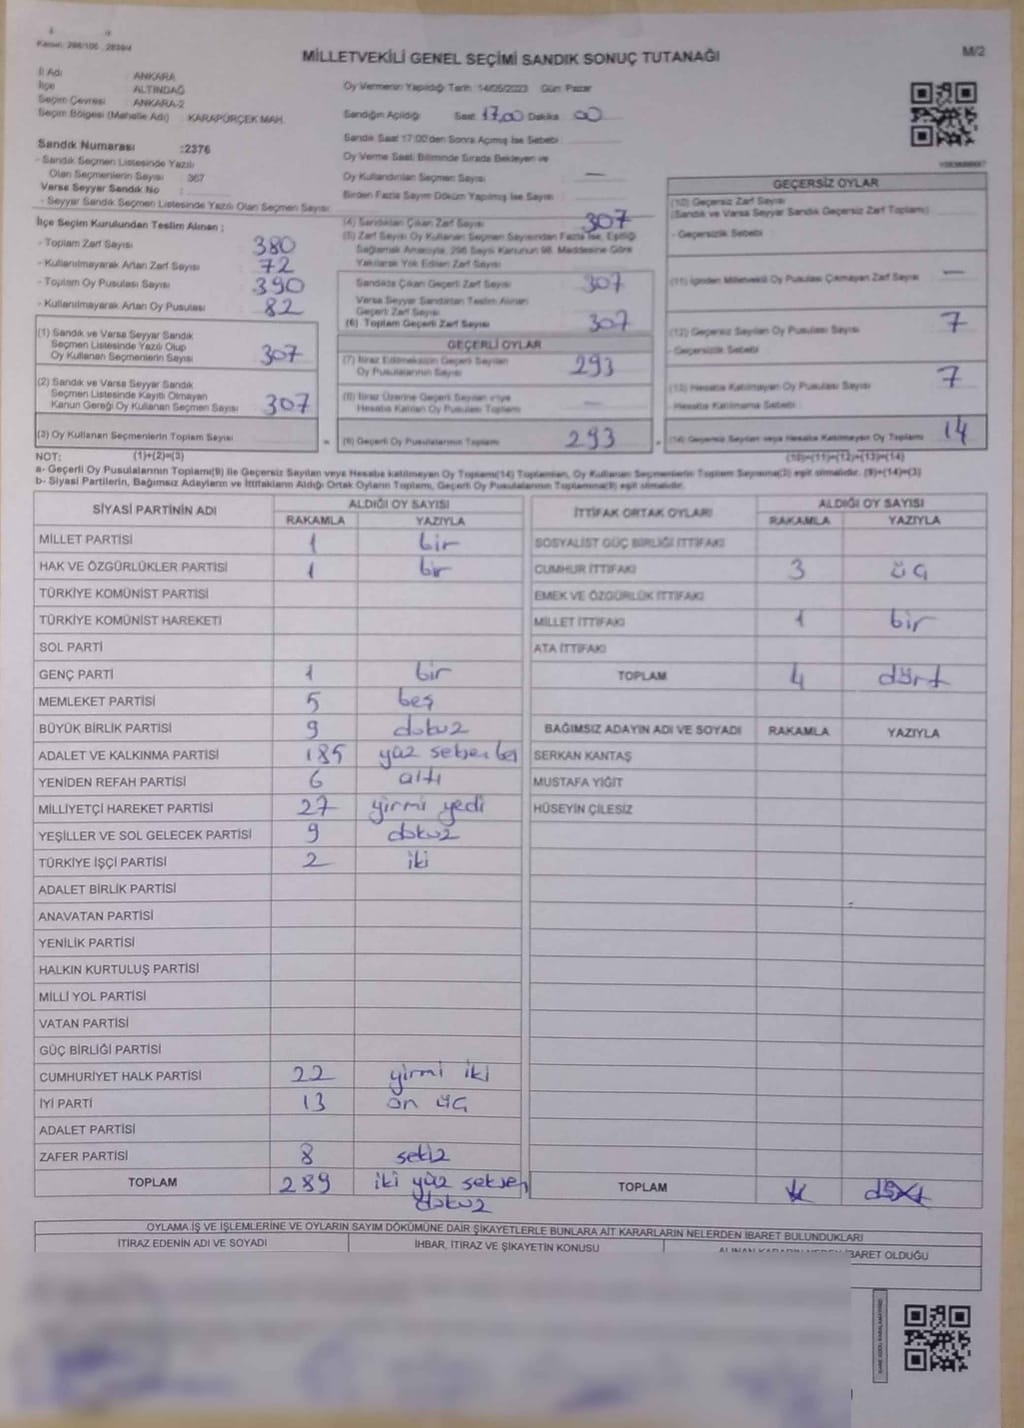 Kanun: 298/105 . 2839/4
MİLLETVEKİLİ GENEL SEÇİMİ SANDIK SONUÇ TUTANAĞI
M/2
İl Adı : ANKARA
İlçe : ALTINDAĞ
Seçim Çevresi : ANKARA-2
Seçim Bölgesi (Mahalle Adı) : KARAPÜRÇEK MAH.
Sandık Numarası :2376
- Sandık Seçmen Listesinde Yazılı
Olan Seçmenlerin Sayısı : 367
Varsa Seyyar Sandık No :
- Seyyar Sandık Seçmen Listesinde Yazılı Olan Seçmen Sayısı :
Oy Vermenin Yapıldığı Tarih: 14/05/2023 Gün: Pazar
Sandığın Açıldığı Saat 17,00 Dakika 00
Sandık Saat 17:00'den Sonra Açılmış İse Sebebi :
Oy Verme Saati Bitiminde Sırada Bekleyen ve
Oy Kullandırılan Seçmen Sayısı : —
Birden Fazla Sayım Döküm Yapılmış İse Sayısı :
İlçe Seçim Kurulundan Teslim Alınan :
- Toplam Zarf Sayısı 380
- Kullanılmayarak Artan Zarf Sayısı 72
- Toplam Oy Pusulası Sayısı 390
- Kullanılmayarak Artan Oy Pusulası 82
(1) Sandık ve Varsa Seyyar Sandık
Seçmen Listesinde Yazılı Olup
Oy Kullanan Seçmenlerin Sayısı 307
(2) Sandık ve Varsa Seyyar Sandık
Seçmen Listesinde Kayıtlı Olmayan
Kanun Gereği Oy Kullanan Seçmen Sayısı 307
(3) Oy Kullanan Seçmenlerin Toplam Sayısı
(4) Sandıktan Çıkan Zarf Sayısı 307
(5) Zarf Sayısı Oy Kullanan Seçmen Sayısından Fazla İse, Eşitliği
Sağlamak Amacıyla, 298 Sayılı Kanunun 98. Maddesine Göre
Yakılarak Yok Edilen Zarf Sayısı
Sandıkta Çıkan Geçerli Zarf Sayısı 307
Varsa Seyyar Sandıktan Teslim Alınan
Geçerli Zarf Sayısı
(6) Toplam Geçerli Zarf Sayısı 307
GEÇERLİ OYLAR
(7) İtiraz Edilmeksizin Geçerli Sayılan
Oy Pusulalarının Sayısı 293
(8) İtiraz Üzerine Geçerli Sayılan veya
Hesaba Katılan Oy Pusulaları Toplamı —
= (9) Geçerli Oy Pusulalarının Toplamı 293
GEÇERSİZ OYLAR
(10) Geçersiz Zarf Sayısı
(Sandık ve Varsa Seyyar Sandık Geçersiz Zarf Toplamı)
- Geçersizlik Sebebi :
(11) İçinden Milletvekili Oy Pusulası Çıkmayan Zarf Sayısı —
(12) Geçersiz Sayılan Oy Pusulası Sayısı 7
- Geçersizlik Sebebi
(13) Hesaba Katılmayan Oy Pusulası Sayısı 7
- Hesaba Katılmama Sebebi :
(14) Geçersiz Sayılan veya Hesaba Katılmayan Oy Toplamı 14
NOT: (1)+(2)=(3) (10)+(11)+(12)+(13)=(14)
a- Geçerli Oy Pusulalarının Toplamı(9) ile Geçersiz Sayılan veya Hesaba katılmayan Oy Toplamı(14) Toplamları, Oy Kullanan Seçmenlerin Toplam Sayısına(3) eşit olmalıdır. (9)+(14)=(3)
b- Siyasi Partilerin, Bağımsız Adayların ve İttifakların Aldığı Ortak Oyların Toplamı, Geçerli Oy Pusulalarının Toplamına(9) eşit olmalıdır.
SİYASİ PARTİNİN ADI ALDIĞI OY SAYISI
RAKAMLA YAZIYLA
MİLLET PARTİSİ 1 bir
HAK VE ÖZGÜRLÜKLER PARTİSİ 1 bir
TÜRKİYE KOMÜNİST PARTİSİ
TÜRKİYE KOMÜNİST HAREKETİ
SOL PARTİ
GENÇ PARTİ 1 bir
MEMLEKET PARTİSİ 5 beş
BÜYÜK BİRLİK PARTİSİ 9 dokuz
ADALET VE KALKINMA PARTİSİ 185 yüz seksen beş
YENİDEN REFAH PARTİSİ 6 altı
MİLLİYETÇİ HAREKET PARTİSİ 27 yirmi yedi
YEŞİLLER VE SOL GELECEK PARTİSİ 9 dokuz
TÜRKİYE İŞÇİ PARTİSİ 2 iki
ADALET BİRLİK PARTİSİ
ANAVATAN PARTİSİ
YENİLİK PARTİSİ
HALKIN KURTULUŞ PARTİSİ
MİLLİ YOL PARTİSİ
VATAN PARTİSİ
GÜÇ BİRLİĞİ PARTİSİ
CUMHURİYET HALK PARTİSİ 22 yirmi iki
İYİ PARTİ 13 on üç
ADALET PARTİSİ
ZAFER PARTİSİ 8 sekiz
TOPLAM 289 iki yüz seksen
dokuz
İTTİFAK ORTAK OYLARI ALDIĞI OY SAYISI
RAKAMLA YAZIYLA
SOSYALİST GÜÇ BİRLİĞİ İTTİFAKI
CUMHUR İTTİFAKI 3 üç
EMEK VE ÖZGÜRLÜK İTTİFAKI
MİLLET İTTİFAKI 1 bir
ATA İTTİFAKI
TOPLAM 4 dört
BAĞIMSIZ ADAYIN ADI VE SOYADI RAKAMLA YAZIYLA
SERKAN KANTAŞ
MUSTAFA YİĞİT
HÜSEYİN ÇİLESİZ
TOPLAM
OYLAMA İŞ VE İŞLEMLERİNE VE OYLARIN SAYIM DÖKÜMÜNE DAİR ŞİKAYETLERLE BUNLARA AİT KARARLARIN NELERDEN İBARET BULUNDUKLARI
İTİRAZ EDENİN ADI VE SOYADI İHBAR, İTİRAZ VE ŞİKAYETİN KONUSU ALINAN KARARIN NEDEN İBARET OLDUĞU